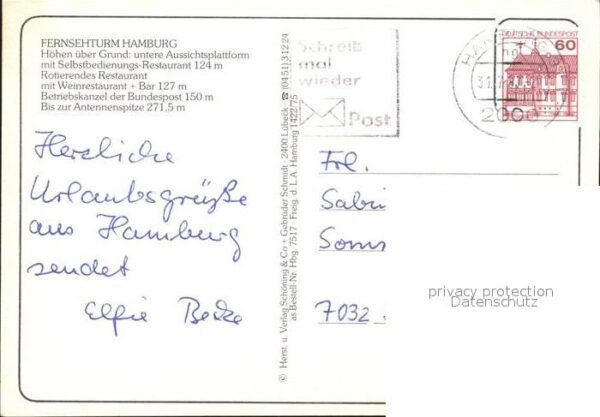 FERNSEHTURM HAMBURG
Höhen über Grund: untere Aussichtsplattform
mit Selbstbedienungs-Restaurant 124 m
Rotierendes Restaurant
mit Weinrestaurant + Bar 127 m
Betriebskanzel der Bundespost 150 m
Bis zur Antennenspitze 271,5 m
Herzliche
Urlaubsgrüße
aus Hamburg
sendet
Elfie
© Herst. u. Verlag Schöning & Co + Gebrüder Schmidt · 2400 Lübeck ☎ (04 51) 3 12 24
as Bestell-Nr. Hbg. 7517 · Freig. d. L.A. Hamburg 1422/75
Schreib
mal
wieder
Post
DEUTSCHE BUNDESPOST
60
2000
Frl.
Sabi
Som
7032
privacy protection
Datenschutz